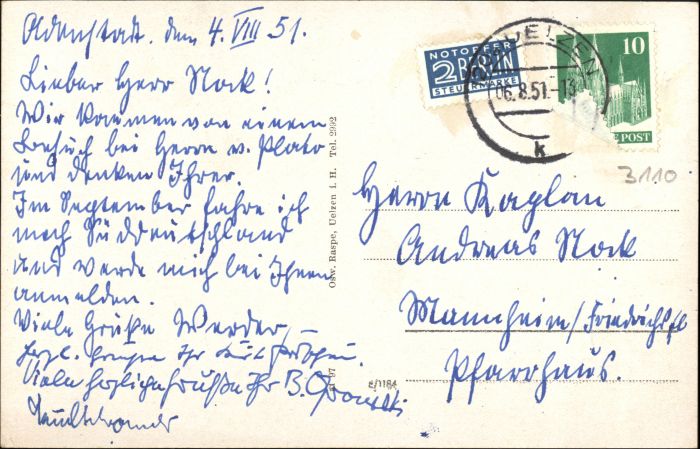 Oldenstadt. dem 4. VIII 51.
Lieber Herr Nock!
Wir kommen von einem
Besuch bei Herrn v. Plato
und denken Ihrer.
Im September fahre ich
nach Süddeutschland
und werde mich bei Ihnen
anmelden.
Viele Grüße Werder
Herzl. Ihr
Viele herzliche Grüße Ihr B.
NOTOPFER
2 BERLIN
STEUERMARKE
UELZEN
06.8.51.-13
k
10
POST
3110
Herrn Kaplan
Andreas Nock
Mannheim/Friedrichsf
Pfarrhaus.
Osw. Raspe, Uelzen i. H. Tel. 2992
97